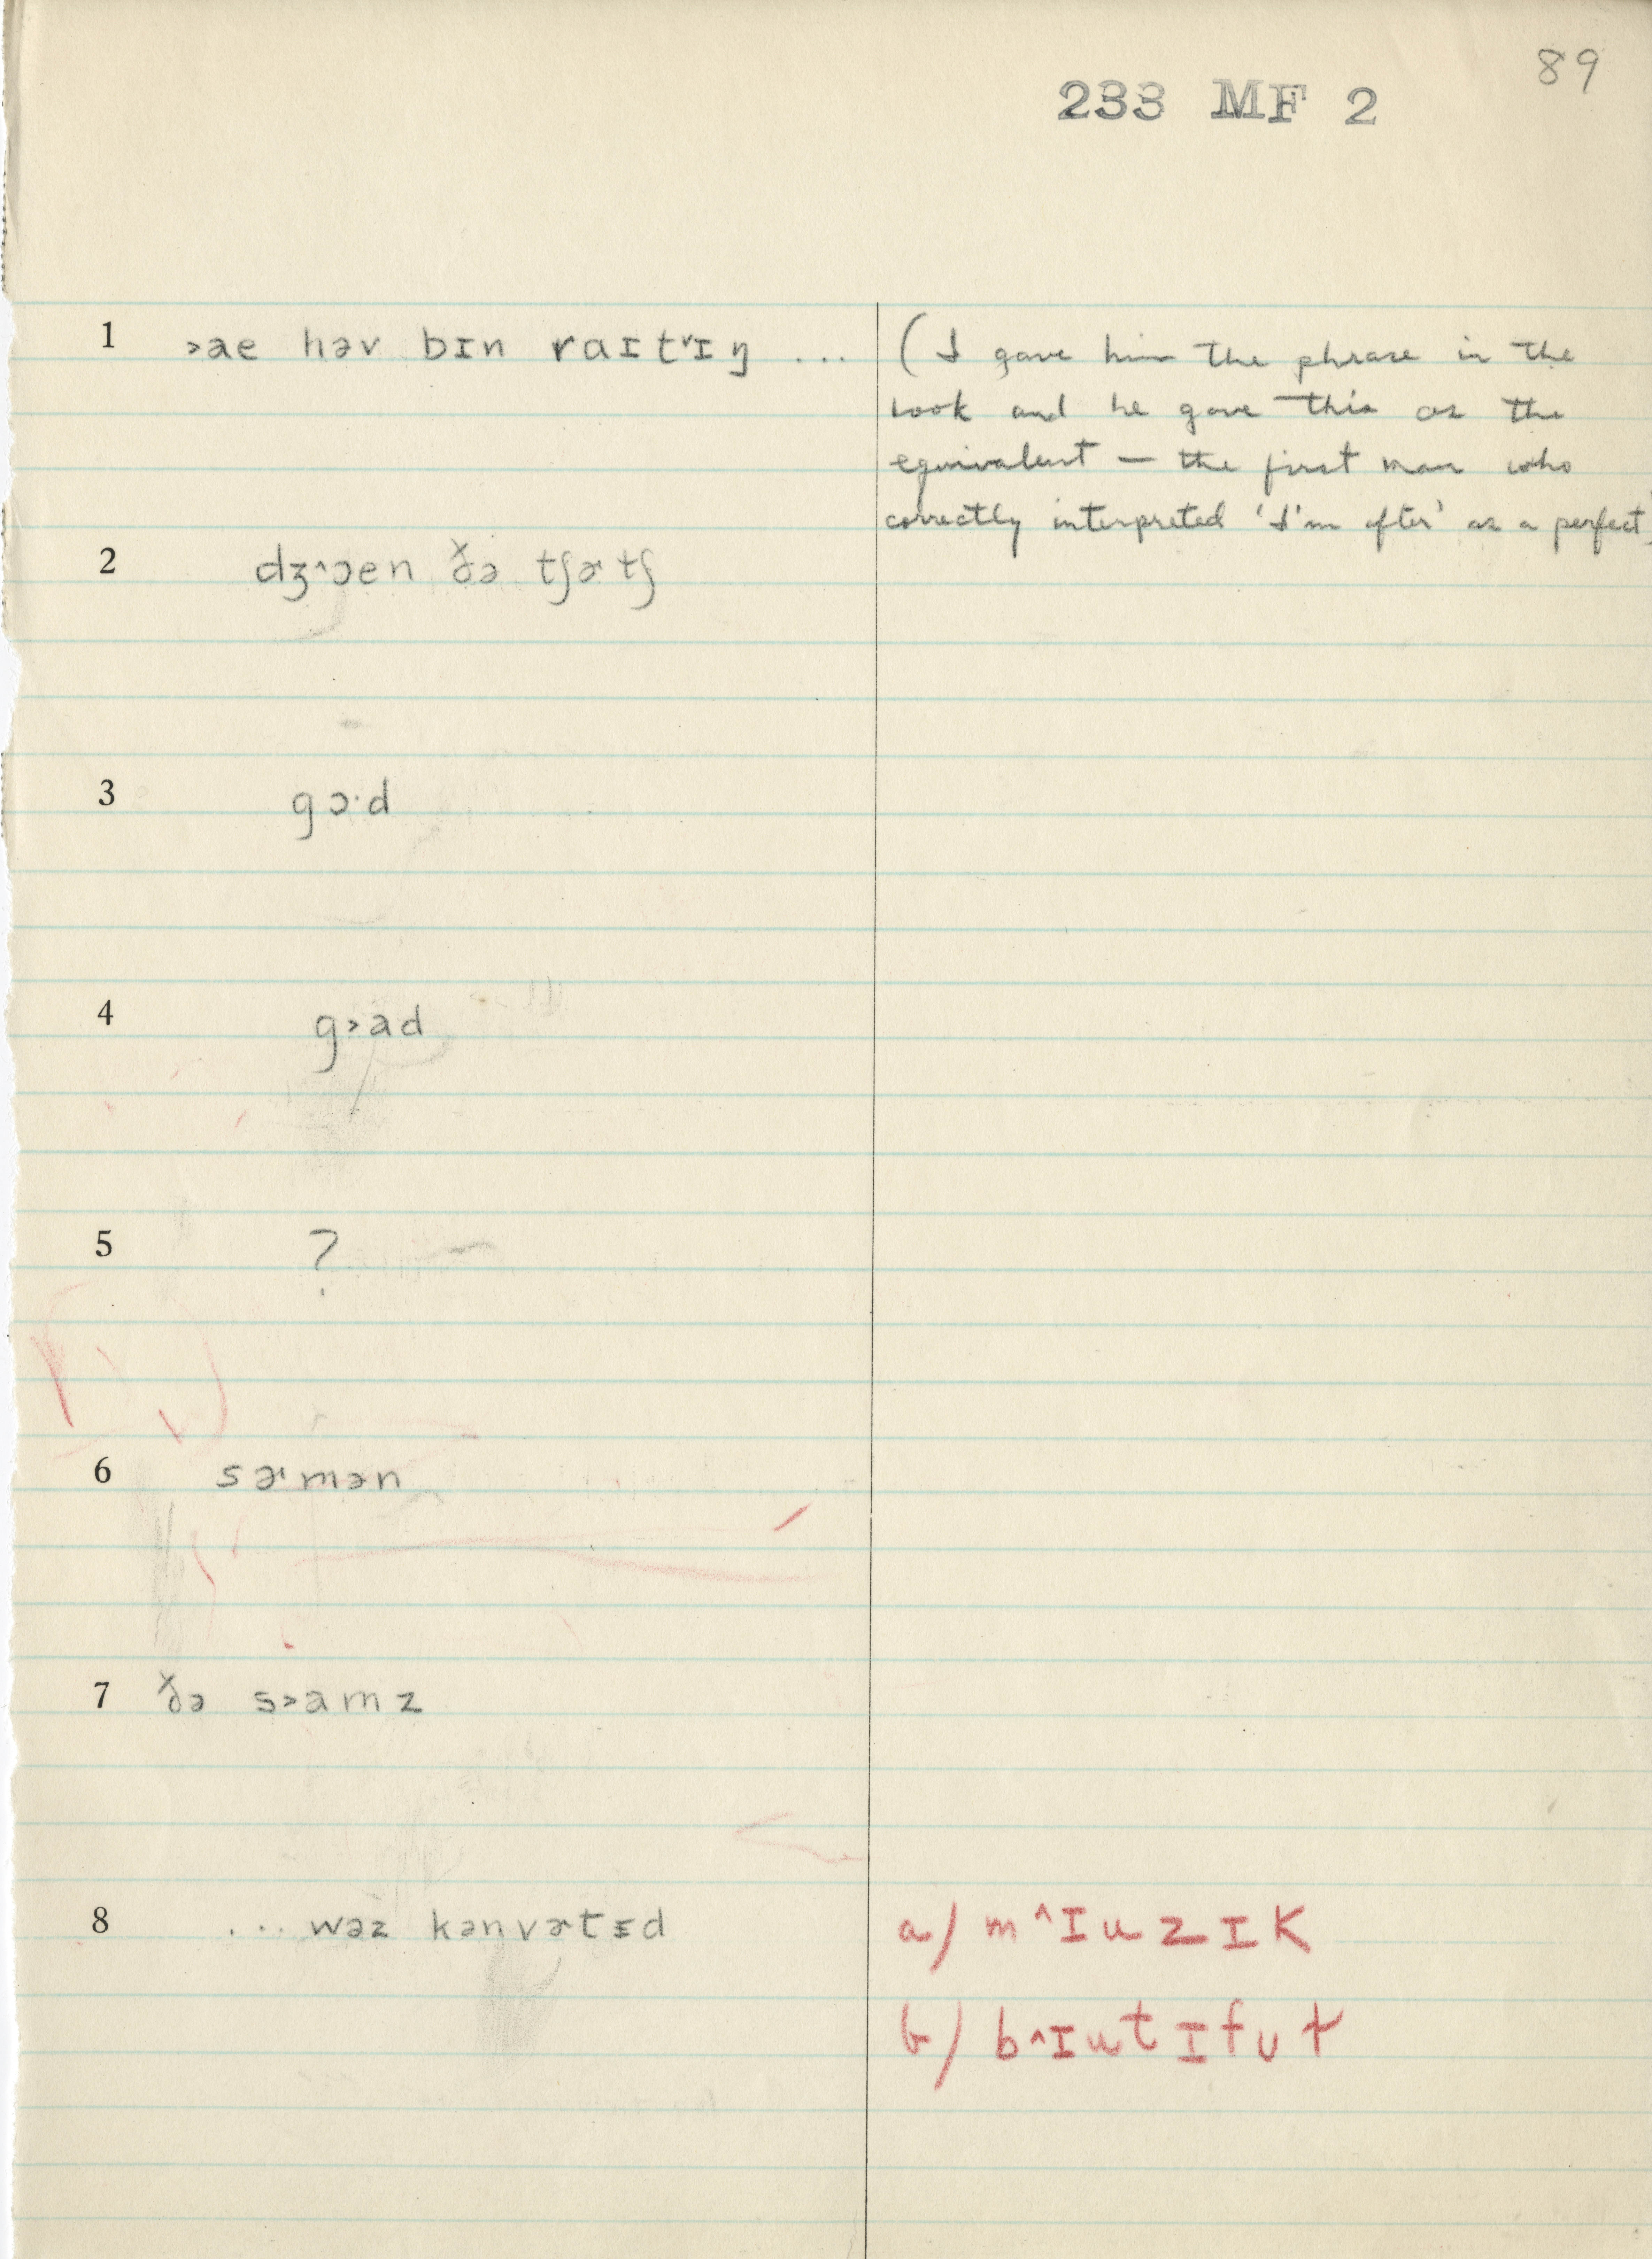 89
233 MF 2
1 ˃ae həv bɪn raɪtᵛɪŋ ... (I gave him the phrase in the
book and he gave this as the
equivalent — the first man who
correctly interpreted 'I'm after' as a perfect.
2 dʒ˄ɔen ðə tʃɚtʃ
3 gɔ·d
4 g˃ad
5 ?
6 sɚmən
7 ðə s˃amz
8 ... wəz kənvɚtɪd a/ m˄ɪuzɪk
b/ b˄ɪutɪfʊɫ